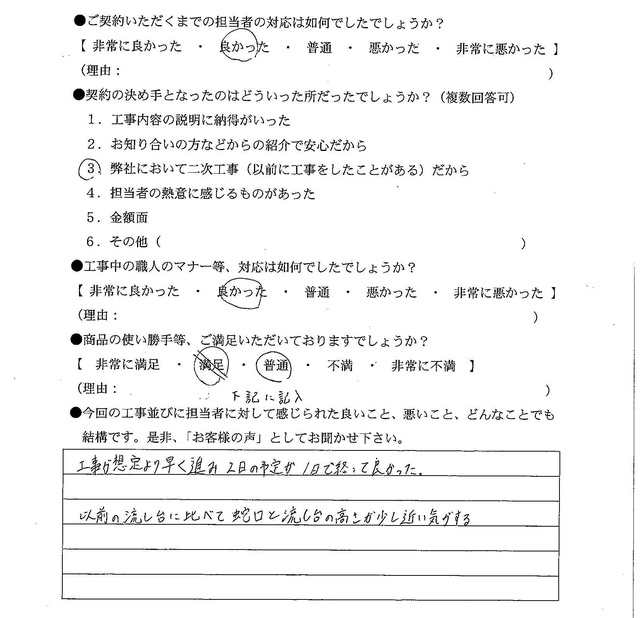 ●ご契約いただくまでの担当者の対応は如何でしたでしょうか？
【 非常に良かった ・ 良かった ・ 普通 ・ 悪かった ・ 非常に悪かった 】
（理由： ）
●契約の決め手となったのはどういった所だったでしょうか？（複数回答可）
1．工事内容の説明に納得がいった
2．お知り合いの方などからの紹介で安心だから
3．弊社において二次工事（以前に工事をしたことがある）だから
4．担当者の熱意に感じるものがあった
5．金額面
6．その他（ ）
●工事中の職人のマナー等、対応は如何でしたでしょうか？
【 非常に良かった ・ 良かった ・ 普通 ・ 悪かった ・ 非常に悪かった 】
（理由： ）
●商品の使い勝手等、ご満足いただいておりますでしょうか？
【 非常に満足 ・ 満足 ・ 普通 ・ 不満 ・ 非常に不満 】
（理由： 下記に記入 ）
●今回の工事並びに担当者に対して感じられた良いこと、悪いこと、どんなことでも
結構です。是非、「お客様の声」としてお聞かせ下さい。
工事が想定より早く進み 2日の予定が 1日で終って良かった。
以前の流し台に比べて 蛇口と流し台の高さが少し近い気がする